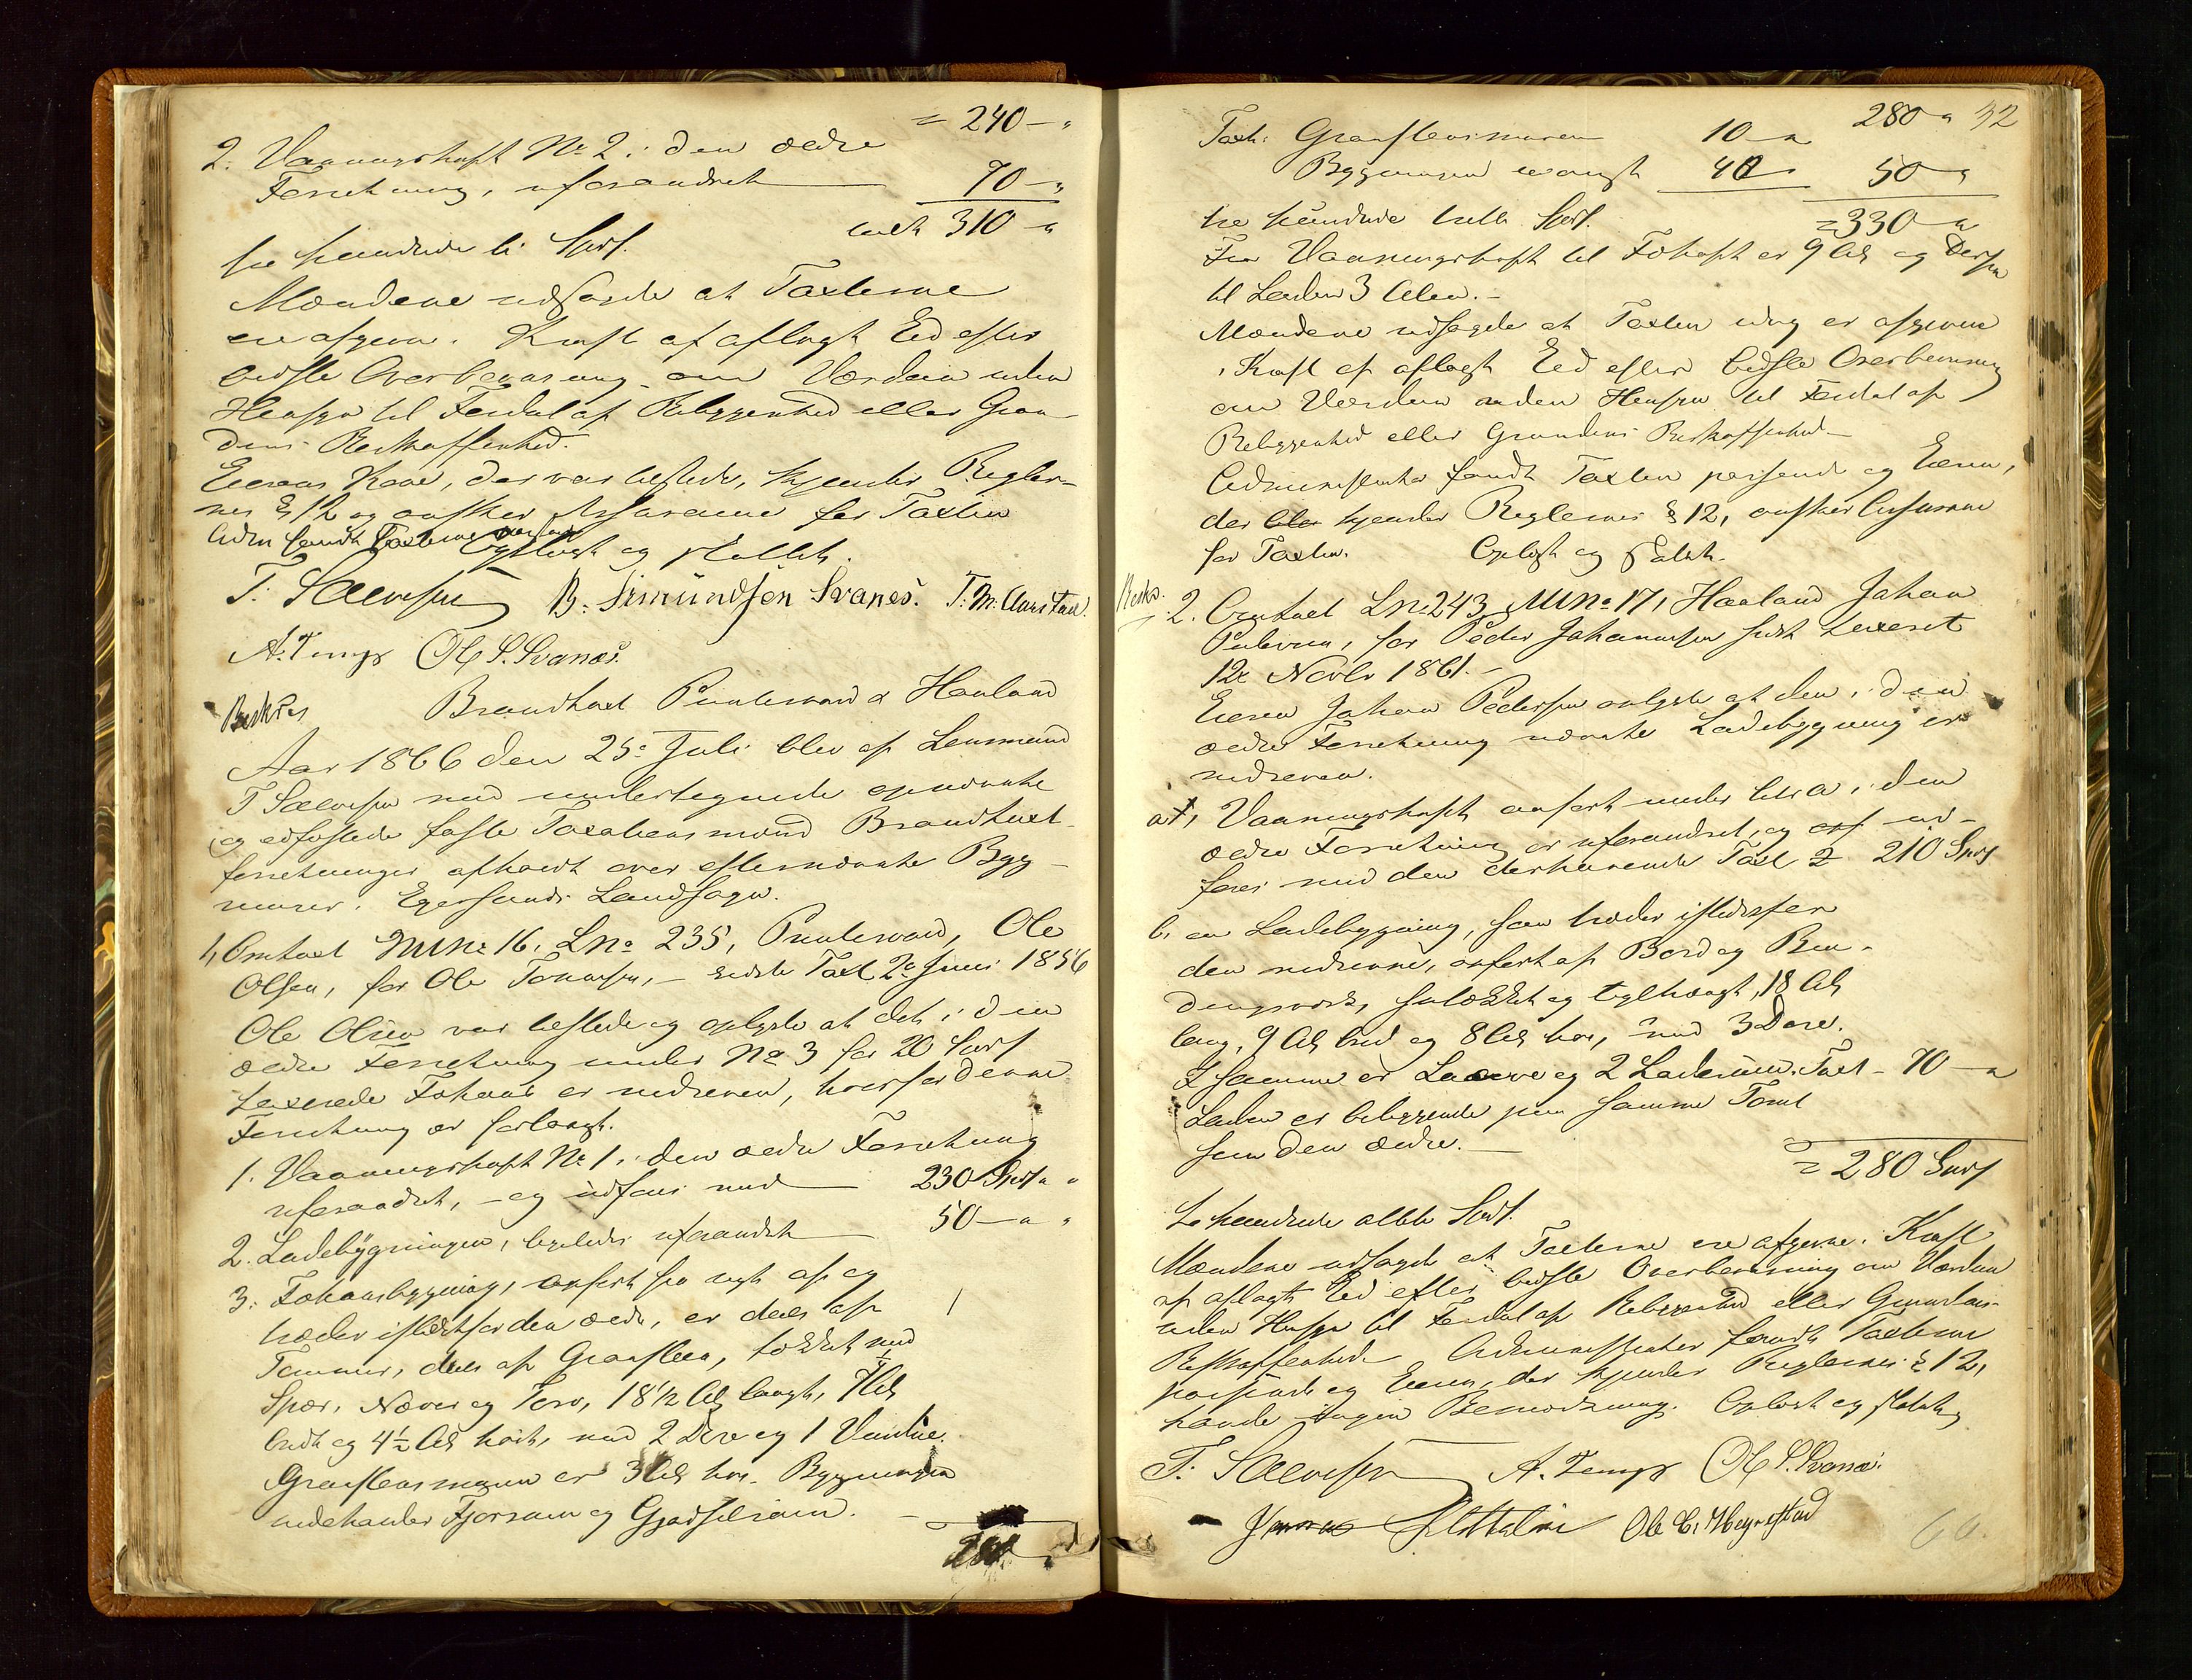 = 240 — "
2. Vaaningshuset No 2 i den ældre
Forretning, uforandret — 70 — "
talt 310 — "
tre hundrede ti Spd.
Mændene udsagde at Taxterne
ere afgivne i Kraft af aflagt Ed efter
bedste Overbeviisning om Værdien uden
Hensyn til Fordel af Beliggenhed eller Grun-
dens Beskaffenhed.
Eierens Kone, der var tilstede, kjender Regler-
nes § 12 og ønsker Assurance for Taxten
Adm fandt Taxterne passende
Oplæst og sluttet.
T. Sælvesen B. Simundsen Svanes. T. M. Aarstad.
A. Tengs Ole S. Svanæs.
Beskr. Brandtaxt Puntervold & Haaland
Aar 1866 den 25e Juli blev af Lensmand
T Sælvesen med undertegnede opnævnte
og edfæstede faste Taxationsmænd Brandtaxt-
forretninger afholdt over efternævnte Byg-
ninger i Egersunds Landsogn.
1, Omtaxt MNo 16, LNo 235, Puntervold, Ole
Olsen, før Ole Tønnesen, — sidste Taxt 2e Juni 1856
Ole Olsen var tilstede og oplyste at det i den
ældre Forretning under No 3 for 20 Spd
taxerede Fæhuus er nedreven, hvorfor denne
Forretning er forlangt.
1. Vaaningshuset No 1 i den ældre Forretning
uforandret, — og udføres med — 230 Spd "
2. Ladebygningen, ligeledes uforandret — 50 — "
3. Fæhuusbygning, opført fra nyt af og
træder istedetfor den ældre, er deels af
Tømmer, deels af Graasteen, tækket med
Spær, Næver og Torv, 18 1/2 Al langt, 7 1/2 Al
bredt og 4 1/2 Al høit, med 2 Døre og 1 Vindue.
Graasteensmuren er 3 Al høi. Bygningen
indeholder Fjøsrum og Gjødselrum. —
280
280 " 32
Taxt: Graasteensmuren 10 — "
Bygningen iøvrigt 40 50 — "
tre hundrede tretti Spd. = 330 — "
Fra Vaaningshuset til Fæhuset er 9 Al og derfra
til Laden 3 Alen. —
Mændene udsagde at Taxten idag er afgiven
i Kraft af aflagt Ed efter bedste Overbeviisning
om Værdien uden Hensyn til Fordel af
Beliggenhed eller Grundens Beskaffenhed —
Administrator fandt Taxten passende og Eieren,
der kjender Reglernes § 12, ønsker Assurance
for Taxten. Oplæst og sluttet.
Beskr. 2. Omtaxt LNo 243, MNo 17, Haaland Johan
Pedersen, før Peder Johannesen sidst taxeret
12e Novbr 1861. —
Eieren Johan Pedersen oplyste at den i den
ældre Forretning nævnte Ladebygning er
nedreven.
a, Vaaningshuset opført under litr a i den
ældre Forretning er uforandret, og ud-
føres med den derhavende Taxt 210 Spd
b, en Ladebygning, som træder istedetfor
den nedrevne, opført af Bord og Bin-
dingsværk, sulækket og teglhængt, 18 Al
lang, 9 Al bred og 8 Al høi, med 3 Døre.
I samme er Laave og 2 Laderum. Taxt — 70 — "
Laden er beliggende paa samme Tomt
som den ældre. —
= 280 Spd
To hundrede otteti Spd.
Mændene udsagde at Taxterne ere afgivne i Kraft
af aflagt Ed efter bedste Overbeviisning om Værdien
uden Hensyn til Fordel af Beliggenhed eller Grundens
Beskaffenhed. Administrator fandt Taxterne
passende og Eieren, der kjender Reglernes § 12,
havde ingen Bemærkning. Oplæst og sluttet
T. Sælvesen A. Tengs Ole S. Svanæs.
Ole C. Hegrestad
60.